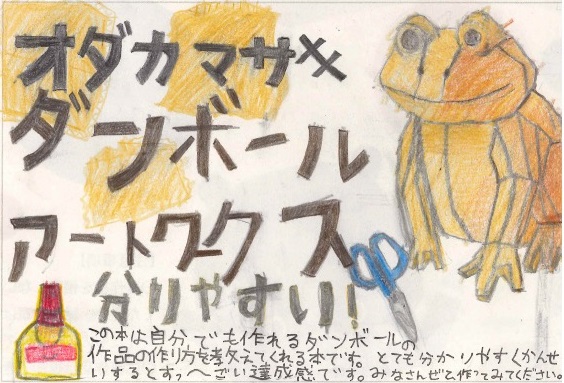 オダカマサキ
ダンボール
アートワークス
分りやすい!
この本は自分でも作れるダンボールの
作品の作り方を教えてくれる本です。とても分かりやすくかんせ
いするとすっへごい達成感です。みなさんぜひ作ってみてください。